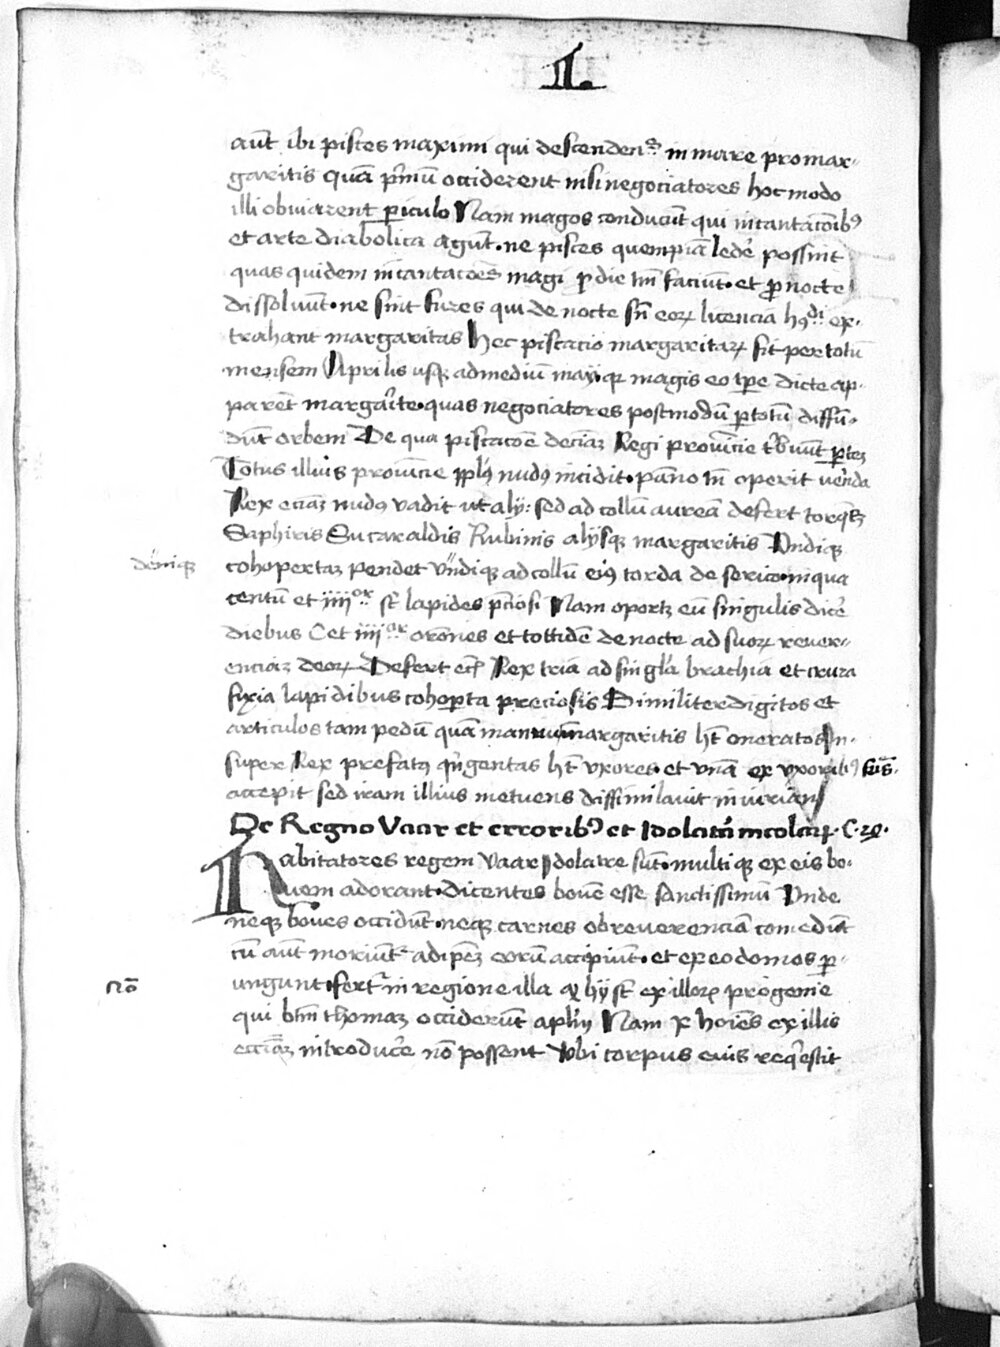 1.
aūt ibi pisces maximi qui descendenᵗᵉˢ in mare pro mar-
garitis quā p̄mū occiderent nisi negociatores hoc modo
illi obviarent periculo Nam magos conducūt qui incantacōibꝰ
et arte diabolica agūt · ne pisces quempiā ledē possint
quas quidem incantacōes magi p̱ die tm̄ faciūt · et pro nocte
dissolvūt · ne sint fures qui de nocte sn̄ eoꝝ licencia ex-
trahant margaritas Hec piscacio margaritaꝝ fit per totū
mensem Aprilis usqꝫ ad mediū maij · qꝫ magis eo tp̄e dicte ap-
parēt margarite · quas negociatores postmodū p̱ totū diffū-
dūt orbem De qua piscacōe deciaꝫ Regi provīcie t̄bvūt p̱tez
Totus illius provīcie pp̄lꝰ nudꝰ incidit · pāno tn̄ operit verēda
Rex eciaꝫ nudꝰ vadit ut alij : sed ad collū aureā defert torqꝫ
Saphiris Smaraldis Rubinis alijsqꝫ margaritis Undiqꝫ
deniqꝫ
cohopertaꝫ pendet Undiqꝫ ad collū eiꝰ corda de serico · in qua
centū et iiijᵒʳ st̄ lapides p̄ciosi Nam oportꝫ eū singulis dicē
diebus C et iiijᵒʳ orōnes et totidē de nocte ad suoꝝ rever-
enciaꝫ deoꝝ Defert eciā Rex tria ad singla brachia et crura
fixia lapidibus cohop̱ta preciosis Similiter digitos et
articulos tam pedū quā manuum margaritis ht̄ oneratos In-
super Rex prefatꝰ qngentas ht̄ uxores · et unā ex uxoribꝰ
accepit sed iram illius metuens dissimilavit iniuriam
De Regno Vaar et erroribꝰ et Idolatriā incolaꝝ · C · 20 ·
Habitatores regem Vaar Idolatre sūt · multi qꝫ ex eis bo-
vem adorant · dicentes bovē esse sanctissimū Unde
neqꝫ boves occidūt · neqꝫ carnes ob reverenciā comedūt
cū aūt moriūtʳ adipeꝫ eorū accipiūt · et ex eo domos p̱-
nō
ungunt · fertʳ in regione illa qꝫ hij st̄ ex illoꝝ progenie
qui btm̄ thomaꝫ occiderūt aplꝫ Nam X hoīēs ex illis
ecciaꝫ introducē nō possent Ubi corpus eius reqꝫestit